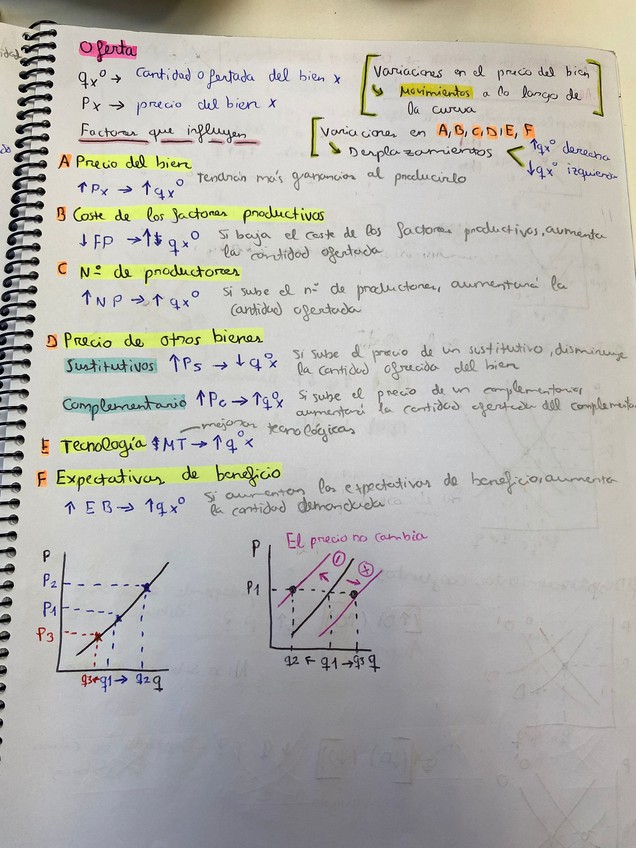 Oferta
qx⁰ → Cantidad ofertada del bien x
Px → precio del bien x
Factores que influyen
Variaciones en el precio del bien
↳ Movimientos a lo largo de
la curva
Variaciones en A, B, C, D, E, F
↳ Desplazamientos < ↑qx⁰ derecha
↓qx⁰ izquierda
A Precio del bien
↑Px → ↑qx⁰ Tendrán más ganancias al producirlo
B Coste de los factores productivos
↓FP → ↑ qx⁰ Si baja el coste de los factores productivos, aumenta
la cantidad ofertada
C Nº de productores
↑NP → ↑qx⁰ Si sube el nº de productores, aumentará la
cantidad ofertada
D Precio de otros bienes
Sustitutivos ↑Ps → ↓qx⁰ Si sube el precio de un sustitutivo, disminuye
la cantidad ofrecida del bien
Complementario ↑Pc → ↑qx⁰ Si sube el precio de un complementario,
aumentará la cantidad ofertada del complementa
mejoras tecnológicas
E Tecnología ↑MT → ↑qx⁰
F Expectativas de beneficio
↑ EB → ↑qx⁰ Si aumentan las expectativas de beneficio, aumenta
la cantidad demandada
P
P2
P1
P3
q3 ← q1 → q2 q
El precio no cambia
P
- +
P1
q2 ← q1 → q3 q